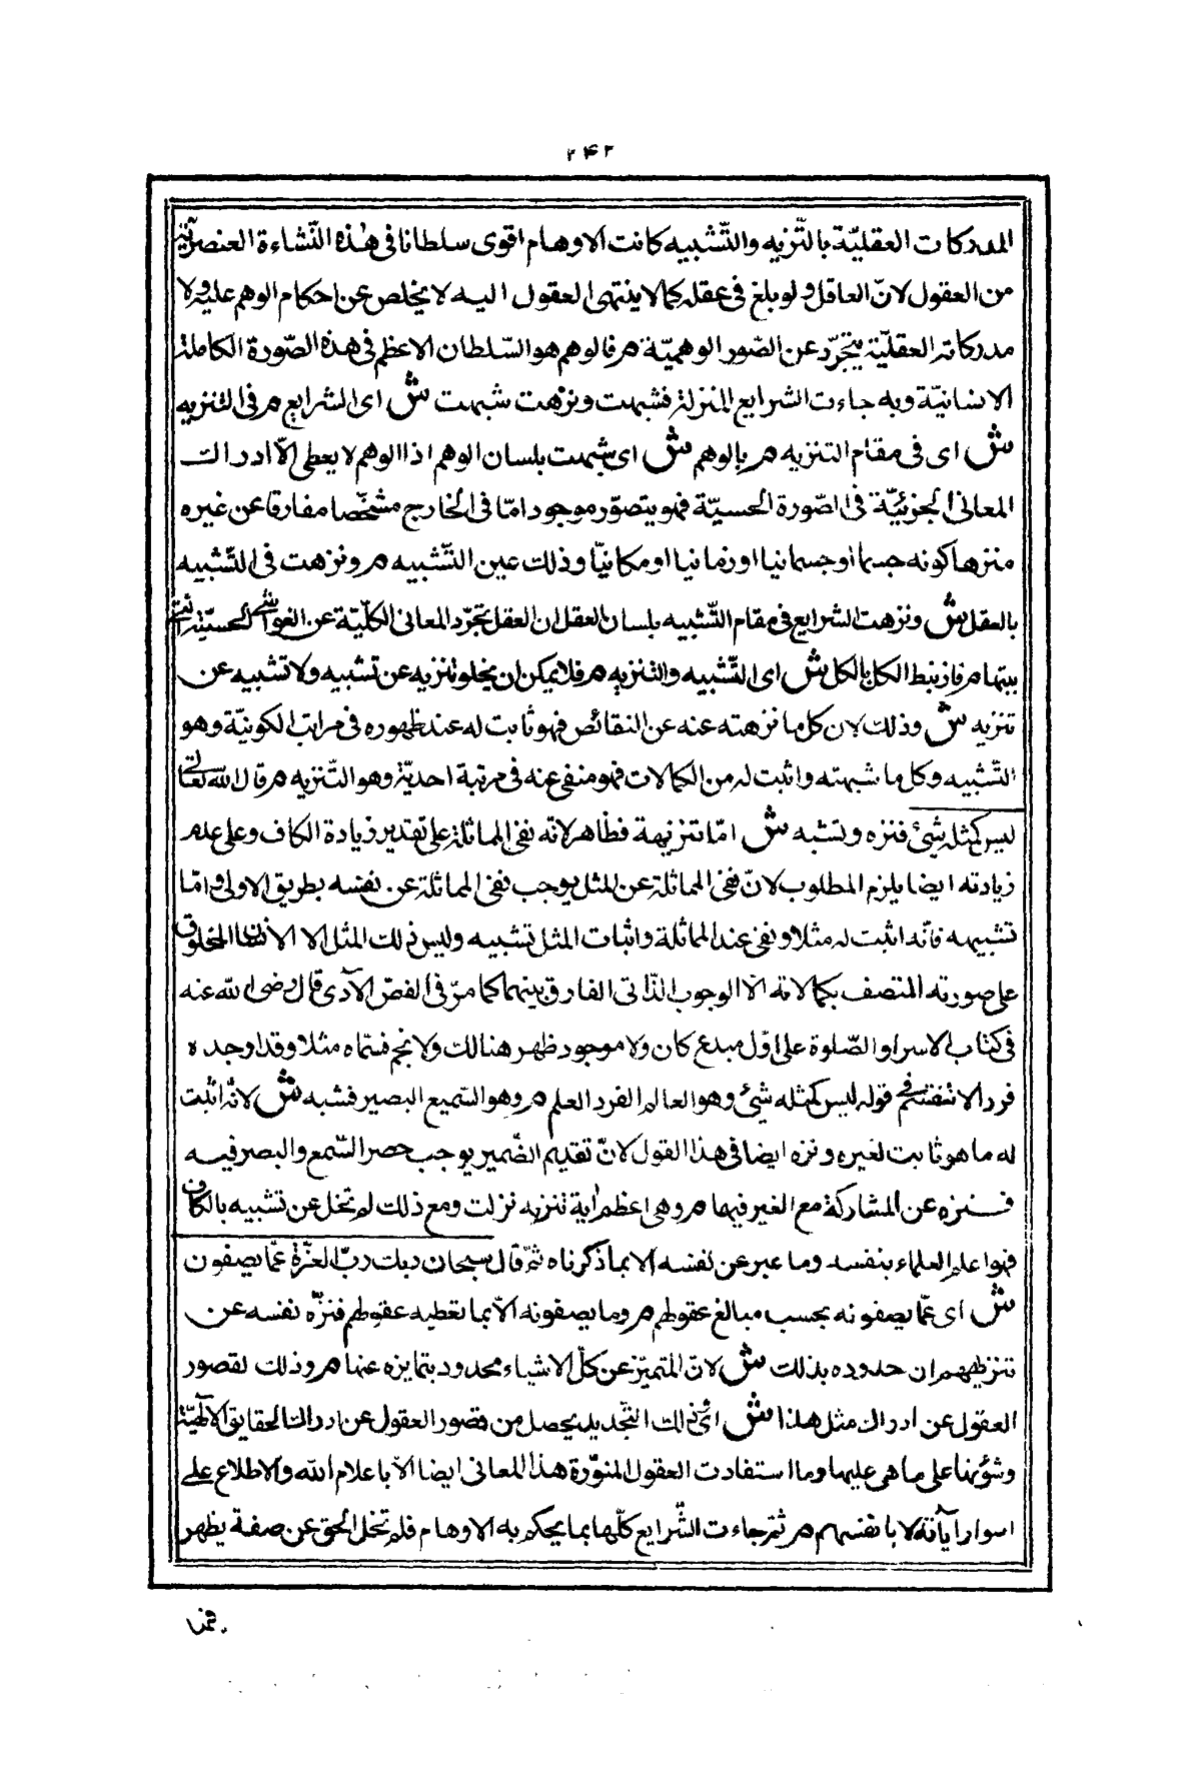 ۲۴۲
المدركات العقليّة بالتّنزيه والتّشبيه كانت الاوهام اقوى سلطانا فى هٰذه النّشاءة العنصريّة
من العقول لانّ العاقل ولو بلغ فى عقله كما لا ينتهى العقول اليه لا يخلص عن احكام الوهم عليه ولا
مدركاته العقليّة يتجرّد عن الصّور الوهميّة م فالوهم هو السّلطان الاعظم فى هذه الصّورة الكاملة
الانسانيّة وبه جاءت الشرايع المنزلة فشبهت ونزهت شبهت ش اى الشرايع م فى التنزيه
ش اى فى مقام التنزيه م بالوهم ش اى شبهت بلسان الوهم اذا الوهم لا يعطى الّا ادراك
المعانى الجزئيّة فى الصّورة الحسيّة فهو يتصوّر موجود امّا فى الخارج مشخّصا مفارقا عن غيره
منزها كونه جسما او جسمانيا او زمانيا او مكانيّا وذلك عين التّشبيه م ونزهت فى التّشبيه
بالعقل ش ونزهت الشرايع فى مقام التّشبيه بلسان العقل ان العقل يجرّد المعانى الكلّيّة عن الغواشى الحسيّة
م فارتبط الكل بالكل ش اى التّشبيه والتنزيه م فلا يمكن ان يخلو تنزيه عن تشبيه ولا تشبيه عن
تنزيه ش وذلك لان كل ما نزهته عنه عن النقائص فهو ثابت له عند ظهوره فى مراتب الكونيّة وهو
التّشبيه وكل ما شبهته واثبت له من الكمالات فهو منفى عنه فى مرتبة احديّة وهو التّنزيه م قال الله تعالى
ليس كمثله شئ فنزه وشبه ش امّا تنزيهة فظاهر لانه نفى المماثلة على تقدير زيادة الكاف وعلى عدم
زيادته ايضا يلزم المطلوب لانّ نفى المماثلة عن المثل يوجب نفى المماثلة عن نفسه بطريق الاولى وامّا
تشبيهه فانّه اثبت له مثلا ونفى عنه المماثلة واثبات المثل تشبيه وليس ذلك المثل الا الانسان المخلوق
على صورته المتصف بكمالاته الّا الوجوب الذّاتى الفارق بينهما كما مرّ فى الفصّ الآدى قال رضى الله عنه
فى كتاب الاسراو الصّلوة على اوّل مبدع كان ولا موجود ظهر هنالك ولا نجم فسمّاه مثلا وقد اوجده
فردا لا قوله ليس كمثله شئ وهو العالم الفرد العلم م وهو السّميع البصير فشبه ش لانّه اثبت
له ما هو ثابت لغيره ونزه ايضا فى هذا القول لانّ تقديم الضّمير يوجب حصر السّمع والبصر فيه
فنزه عن المشاركة مع الغير فيها م وهى اعظم اية تنزيه نزلت ومع ذلك لم تخل عن تشبيه بالكاف
فهو اعلم العلماء بنفسه وما عبر عن نفسه الا بما ذكرناه ثمّ قال سبحان ربك ربّ العزّة عمّا يصفون
ش اى عمّا يصفونه بحسب مبالغ عقولهم م وما يصفونه الّا بما تعطيه عقولهم فنزّه نفسه عن
تنزيههم ان حدوده بذلك ش لانّ المتميّز عن كلّ الاشياء محدود بتمايزه عنها م وذلك لقصور
العقول عن ادراك مثل هذا ش اى ذلك التّحديد يحصل من قصور العقول عن ادراك الحقايق الالٓهيّة
وشؤنها على ما هى عليها وما استفادت العقول المنوّرة هذا المعانى ايضا الّا باعلام الله والاطلاع على
اسوار آياته لا بانفسهم م ثمّ جاءت الشّرايع كلّها بما يحكم به الاوهام فلم تخل الحق عن صفة يظهر